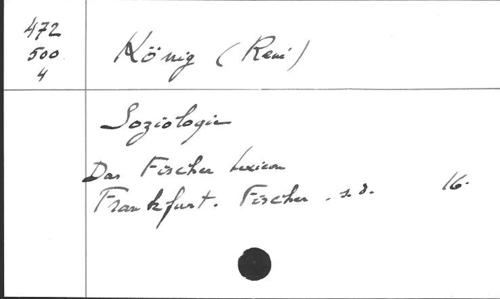 472
500
4
König (René)
Soziologie
Das Fischer Lexicon
Frankfurt. Fischer. s.d. 16.